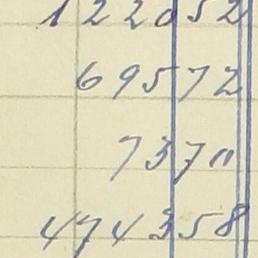 122052
69572
737"
474358